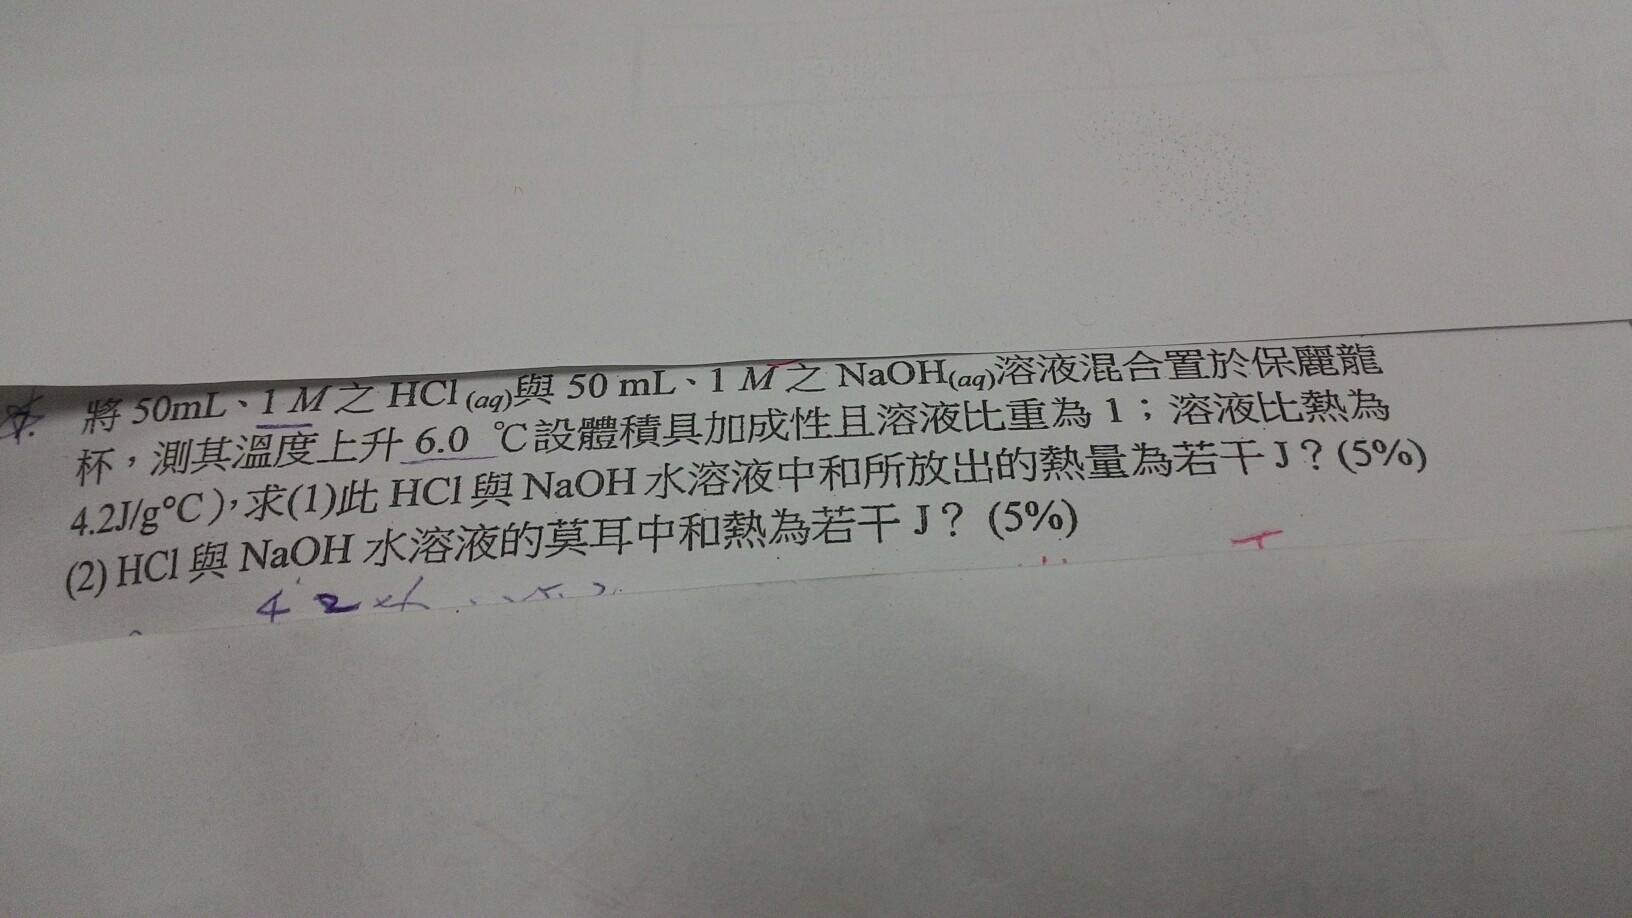 將 50mL、1 M 之 HCl (aq)與 50 mL、1 M 之 NaOH(aq)溶液混合置於保麗龍
杯，測其溫度上升 6.0 ℃設體積具加成性且溶液比重為 1；溶液比熱為
4.2J/g℃），求(1)此 HCl 與 NaOH 水溶液中和所放出的熱量為若干 J？(5%)
(2) HCl 與 NaOH 水溶液的莫耳中和熱為若干 J？ (5%)